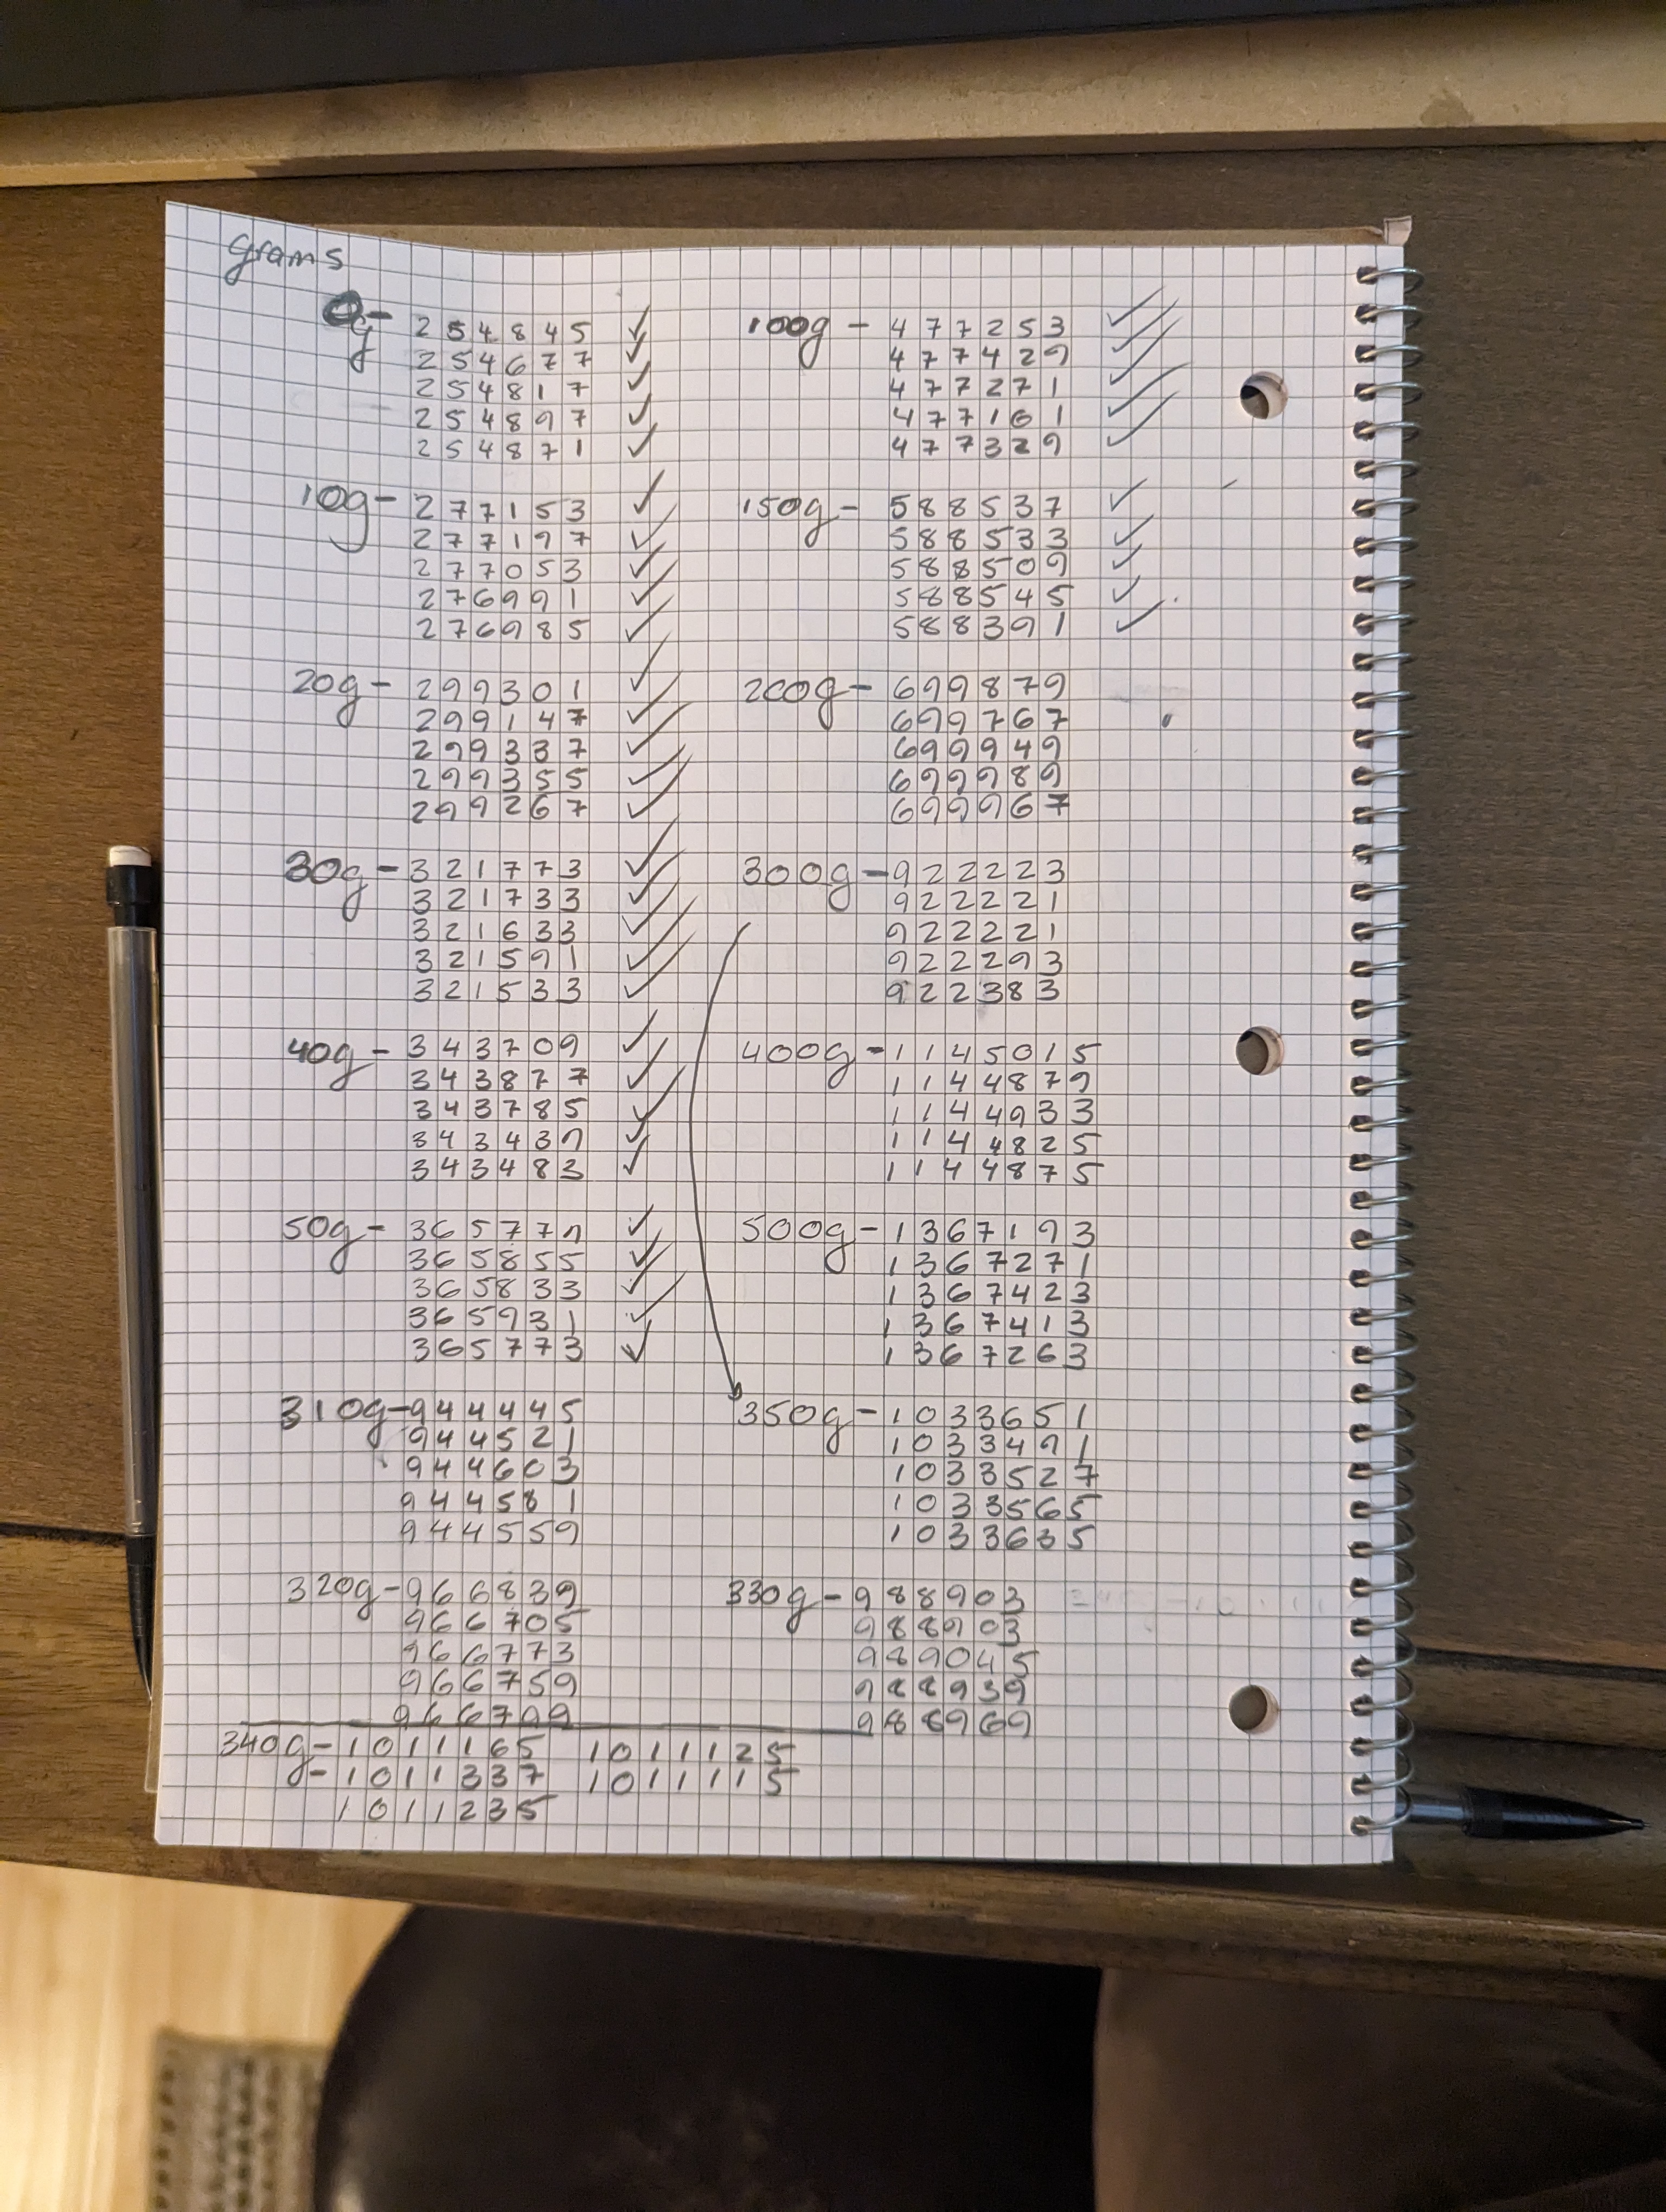 grams
0g - 254845 ✓
254677 ✓
254817 ✓
254897 ✓
254871 ✓
10g - 277153 ✓
277197 ✓
277053 ✓
276991 ✓
276985 ✓
20g - 299301 ✓
299147 ✓
299337 ✓
299355 ✓
299267 ✓
30g - 321773 ✓
321733 ✓
321633 ✓
321591 ✓
321533 ✓
40g - 343709 ✓
343877 ✓
343785 ✓
343439 ✓
343483 ✓
50g - 365779 ✓
365855 ✓
365833 ✓
365931 ✓
365773 ✓
310g - 944445
944521
944603
944581
944559
320g - 966839
966705
966773
966759
966799
100g - 477253 ✓
477429 ✓
477271 ✓
477161 ✓
477329 ✓
150g - 588537 ✓
588533 ✓
588509 ✓
588545 ✓
588391 ✓
200g - 699879
699767
699949
699989
699967
300g - 922223
922221
922221
922293
922383
400g - 1145015
1144879
1144933
1144825
1144875
500g - 1367193
1367271
1367423
1367413
1367263
350g - 1033651
1033491
1033527
1033565
1033635
330g - 988903
988903
989045
988939
988969
340g - 1011165 1011125
g - 1011337 1011115
1011235